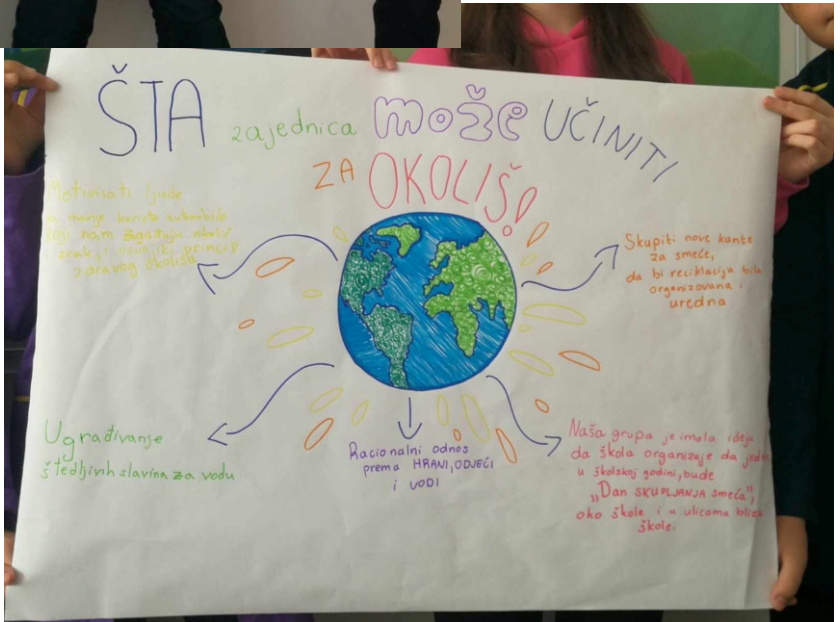 ŠTA zajednica može UČINITI
ZA OKOLIŠ!
Motivisati ljude
manje koriste automobile
koji nam zagađuju okoliš
znak, i osnovni princip
zdravog okoliša
Skupiti nove kante
za smeće,
da bi reciklacija bila
organizovana i
uredna
Ugrađivanje
štedljivih slavina za vodu
Racionalni odnos
prema HRANI, ODJEĆI
i VODI
Naša grupa je imala ideju
da škola organizuje da
u školskoj godini, bude
„Dan SKUPLJANJA smeća",
oko škole i u ulicama blizu
škole.